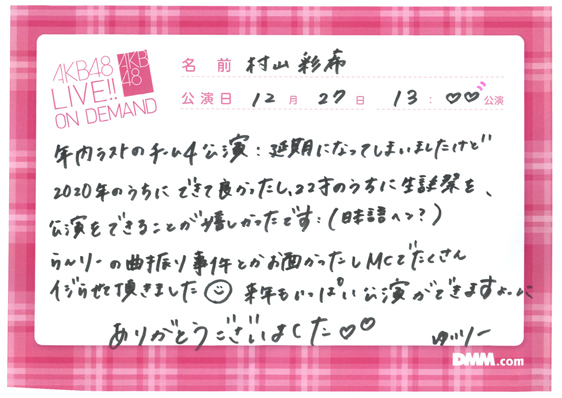 AKB48
LIVE!!
ON DEMAND
AKB
48
名 前 村山彩希
公演日 12 月 27 日 13:♡♡ 公演
年内ラストのチーム4公演:延期になってしまいましたけど
2020年のうちにできて良かったし、22才のうちに生誕祭を、
公演をできることが嬉しかったです:(日本語ヘン?)
らんりーの曲振り事件とかお面かったしMCでたくさん
イジらせて頂きました☺ 来年もいっぱい公演ができますよーに
ありがとうございました♡♡
DMM.com